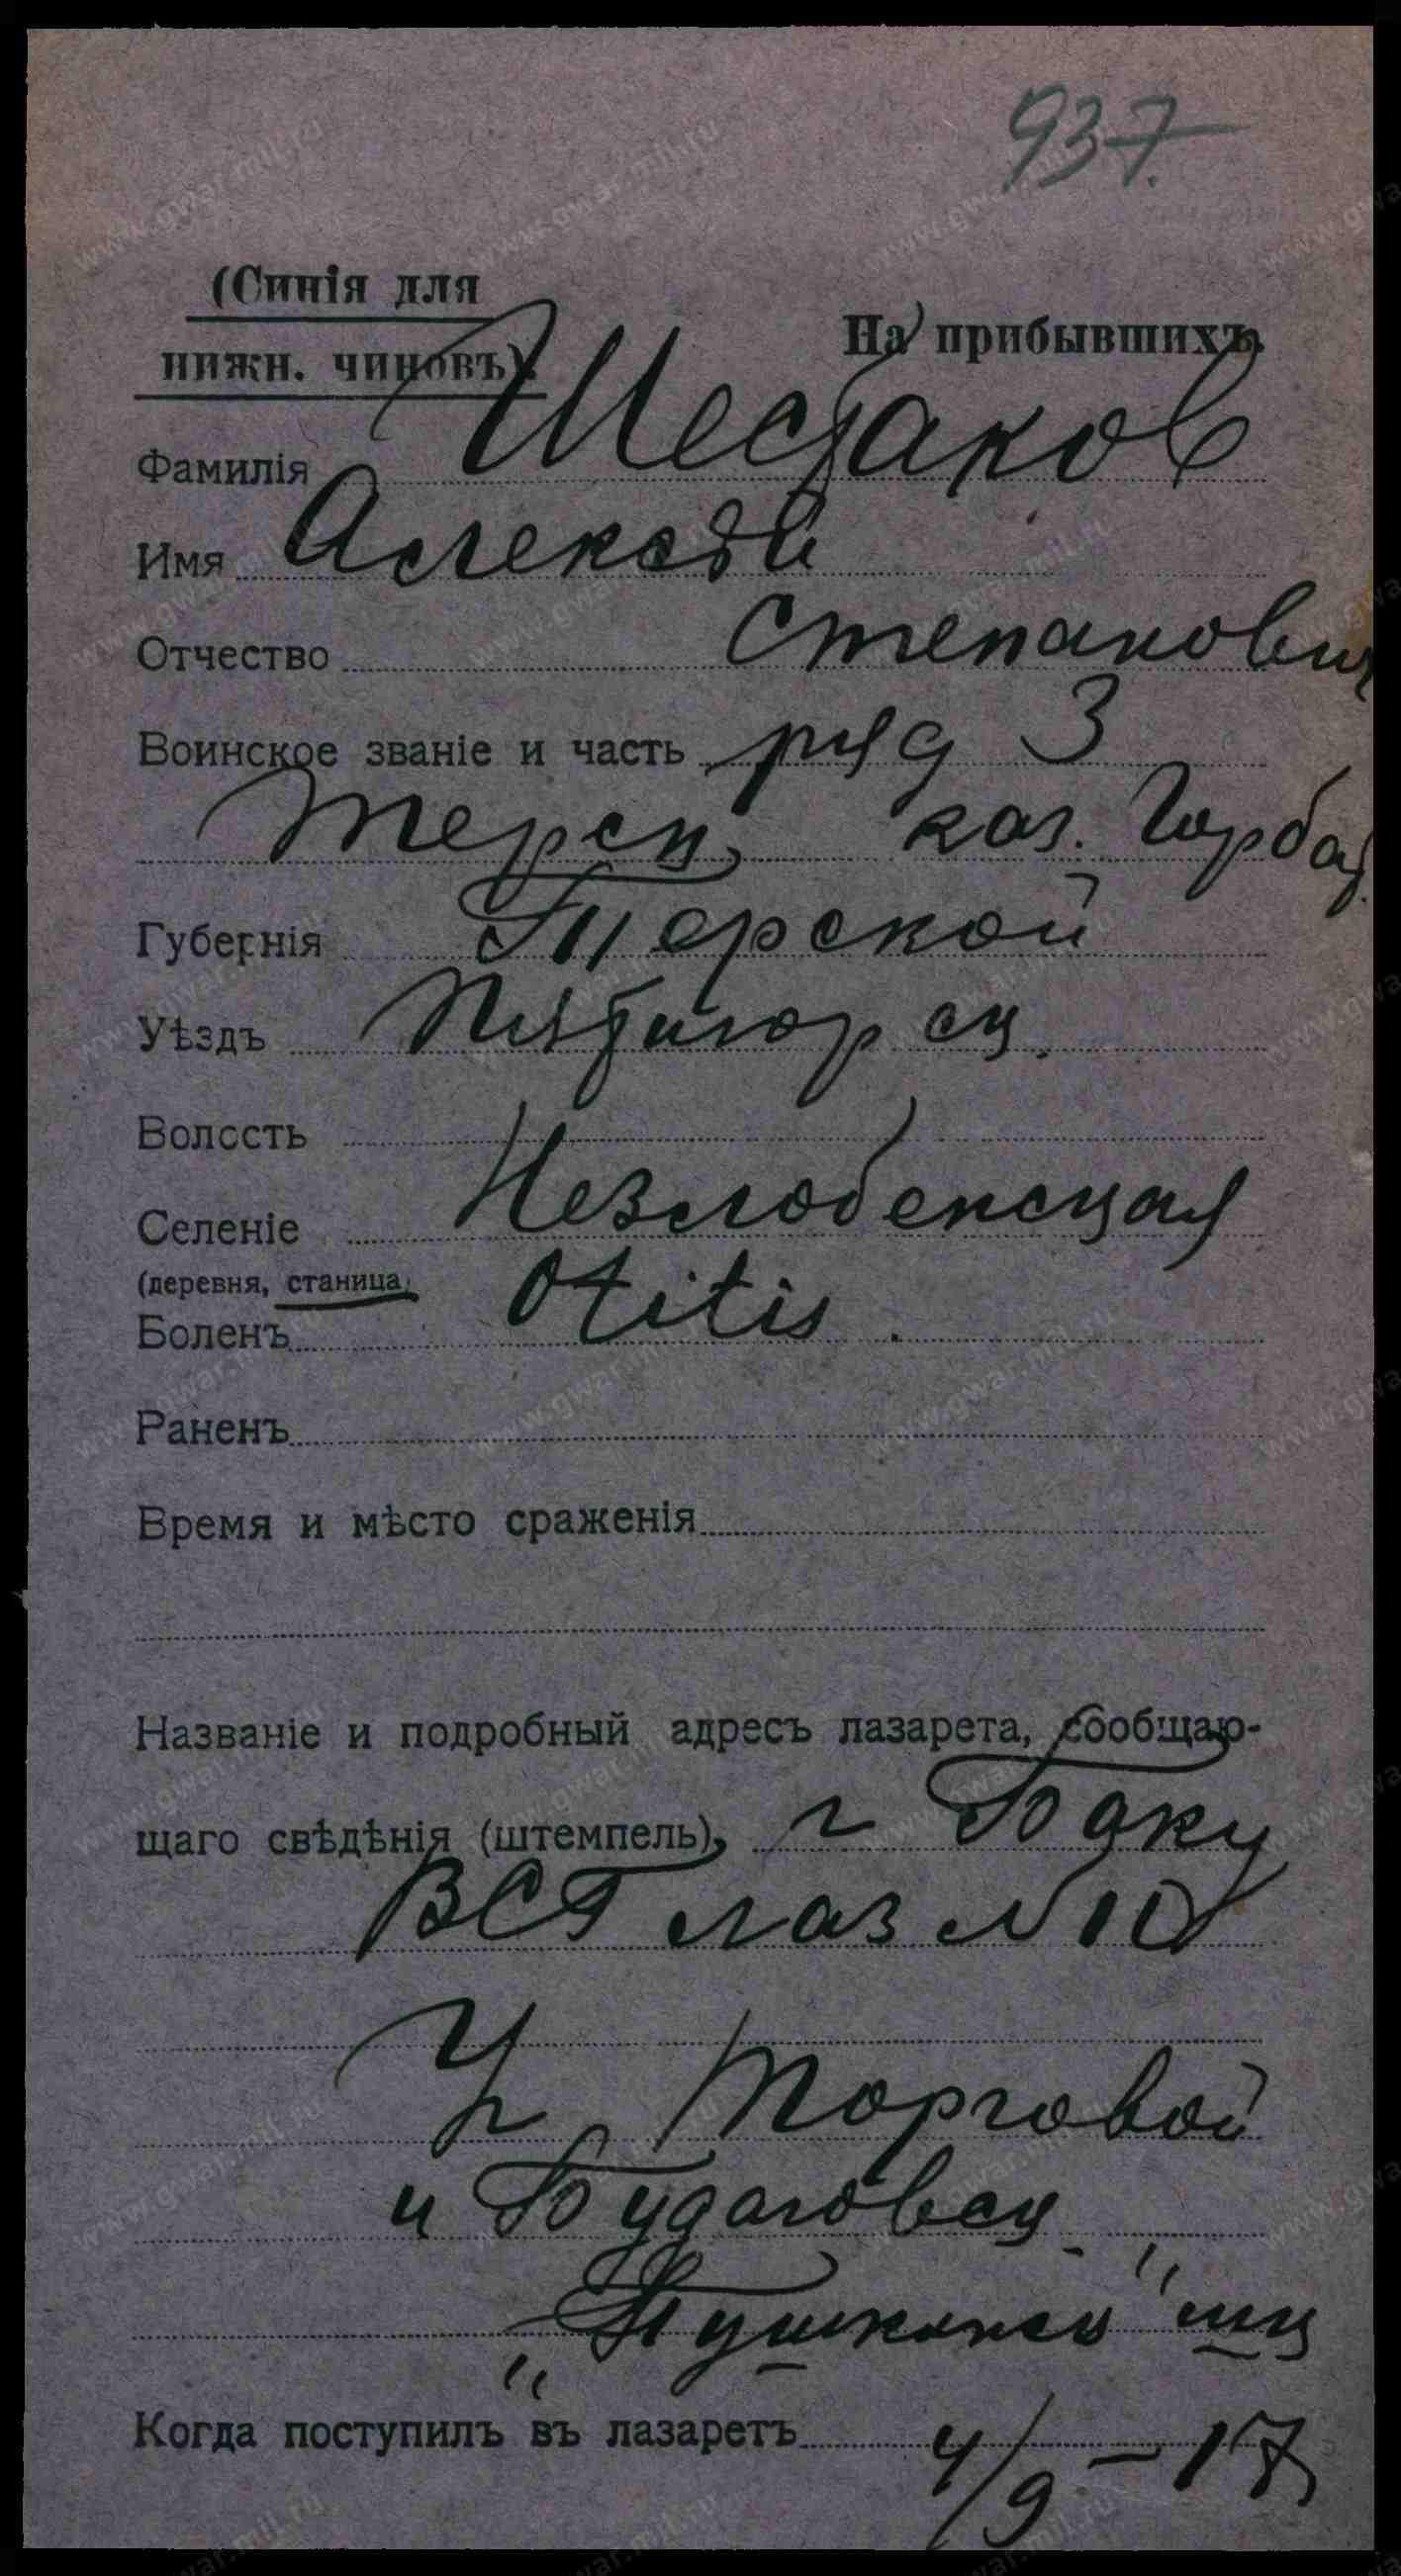 937.
(Синія для
нижн. чиновъ).
На прибывшихъ.
Фамилія Шестаков
Имя Алексѣй
Отчество Степанович
Воинское званіе и часть ряд 3
Терск каз.
Губернія Терской
Уѣздъ Пятигорск
Волость
Селеніе Незлобенская
(деревня, станица)
Боленъ Otitis
Раненъ
Время и мѣсто сраженія
Названіе и подробный адресъ лазарета, сообщаю-
щаго свѣдѣнія (штемпель) г Баку
ВСГ лаз № 10
У. Торговой
и Будаговск
"Пушкинск" шк
Когда поступилъ въ лазаретъ 4/9 - 17